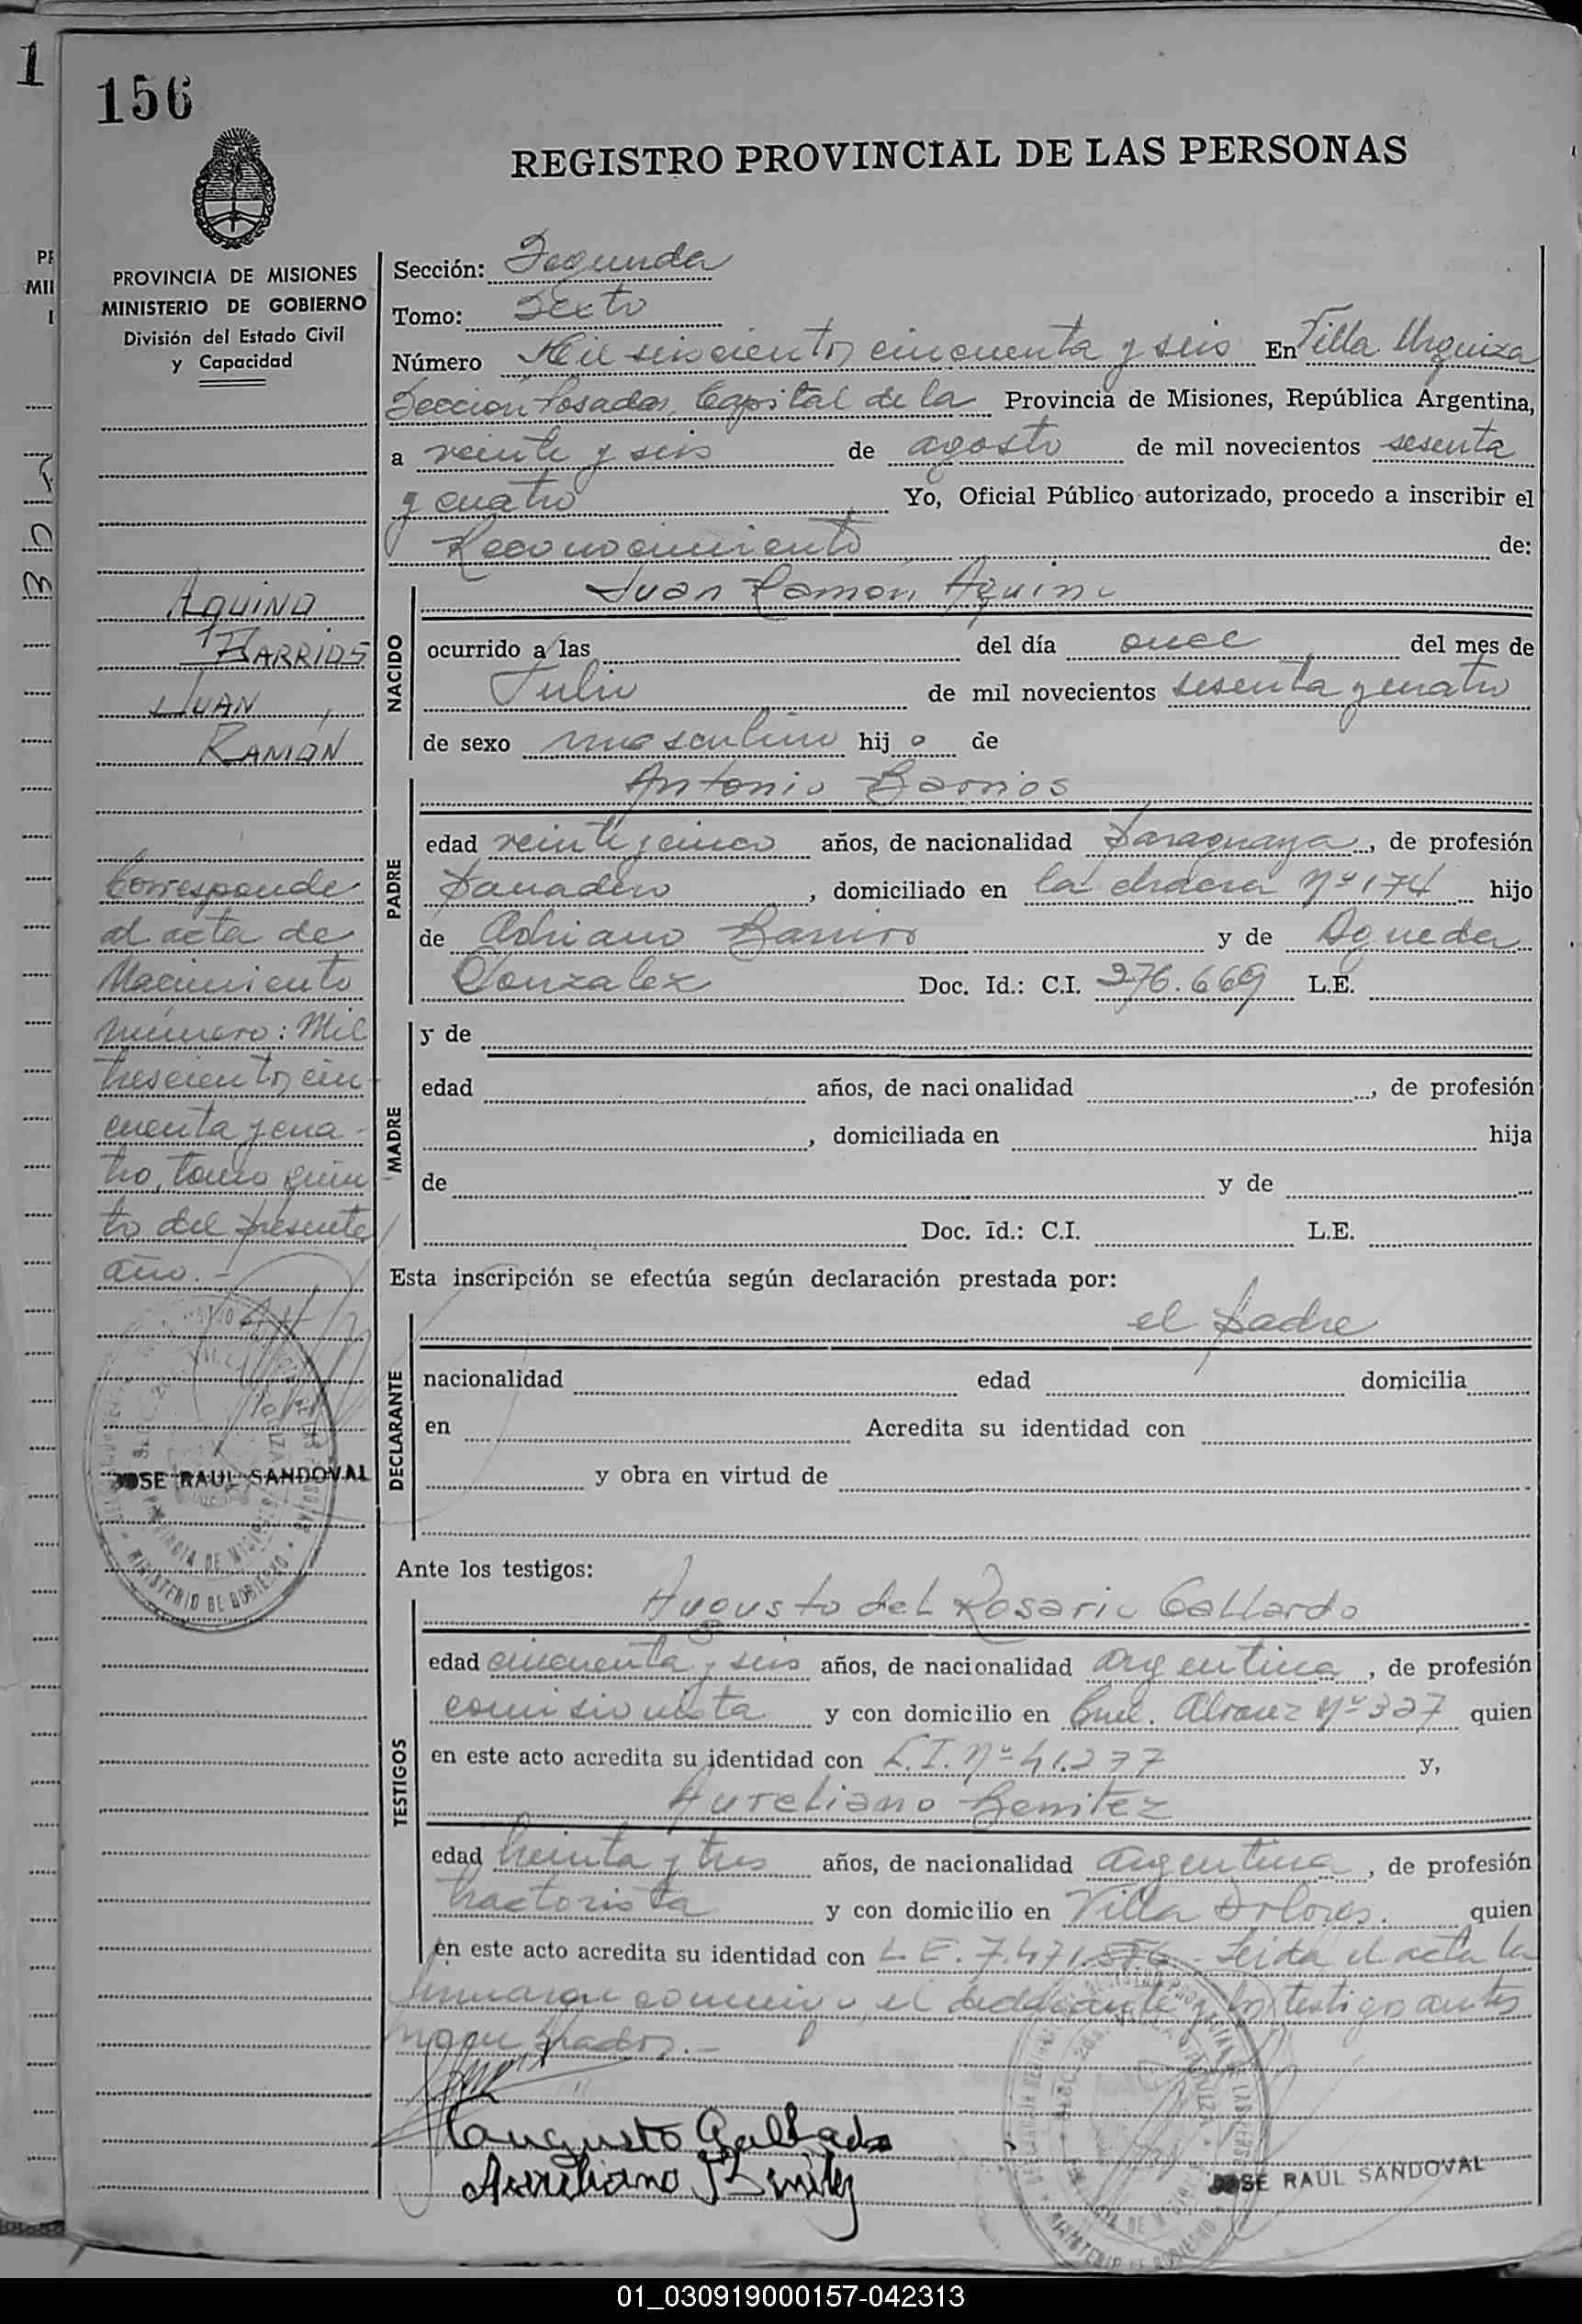 1
156
REGISTRO PROVINCIAL DE LAS PERSONAS
PROVINCIA DE MISIONES
MINISTERIO DE GOBIERNO
División del Estado Civil
y Capacidad
AQUINO
BARRIOS
JUAN
RAMÓN
Corresponde
al acta de
Nacimiento
número: Mil
trescientos cin-
cuenta y cua-
tro, tomo quin
to del presente
año.-
JOSE RAUL SANDOVAL
Sección: Segunda
Tomo: Sexto
Número Mil seiscientos cincuenta y seis En Villa Urquiza
Sección Posadas, Capital de la Provincia de Misiones, República Argentina,
a veinte y seis de agosto de mil novecientos sesenta
y cuatro Yo, Oficial Público autorizado, procedo a inscribir el
Reconocimiento de:
NACIDO
Juan Ramón Aquino
ocurrido a las del día once del mes de
Julio de mil novecientos sesenta y cuatro
de sexo masculino hijo de
PADRE
Antonio Barrios
edad veinte y cinco años, de nacionalidad paraguaya, de profesión
panadero, domiciliado en la chacra Nº 174 hijo
de Adriano Barrios y de Agueda
Gonzalez Doc. Id.: C.I. 276.669 L.E.
MADRE
y de
edad años, de nacionalidad , de profesión
, domiciliada en hija
de y de
Doc. Id.: C.I. L.E.
Esta inscripción se efectúa según declaración prestada por:
DECLARANTE
el padre
nacionalidad edad domicilia
en Acredita su identidad con
y obra en virtud de
Ante los testigos:
TESTIGOS
Augusto del Rosario Gallardo
edad cincuenta y seis años, de nacionalidad argentina, de profesión
comisionista y con domicilio en Cnel. Alvarez Nº 327 quien
en este acto acredita su identidad con C.I. Nº 41.277 y,
Aureliano Benitez
edad treinta y tres años, de nacionalidad argentina, de profesión
tractorista y con domicilio en Villa Dolores. quien
en este acto acredita su identidad con L.E. 7.471.856.- Leida el acta la
firmaron conmigo el declarante y los testigo antes
nombrados.-
Augusto Gallardo
Aureliano Benitez
JOSE RAUL SANDOVAL
01_030919000157-042313